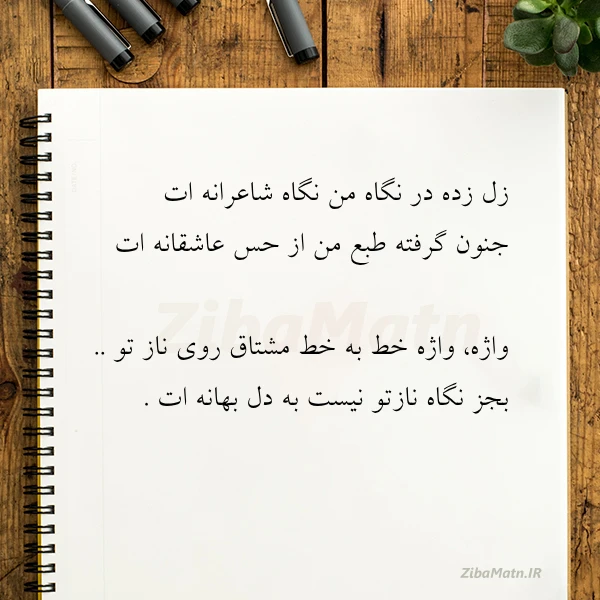 زل زده در نگاه من نگاه شاعرانه ات
جنون گرفته طبع من از حس عاشقانه ات
واژه، واژه خط به خط مشتاق روی ناز تو ..
بجز نگاه نازتو نیست به دل بهانه ات .
ZibaMatn
ZibaMatn.IR